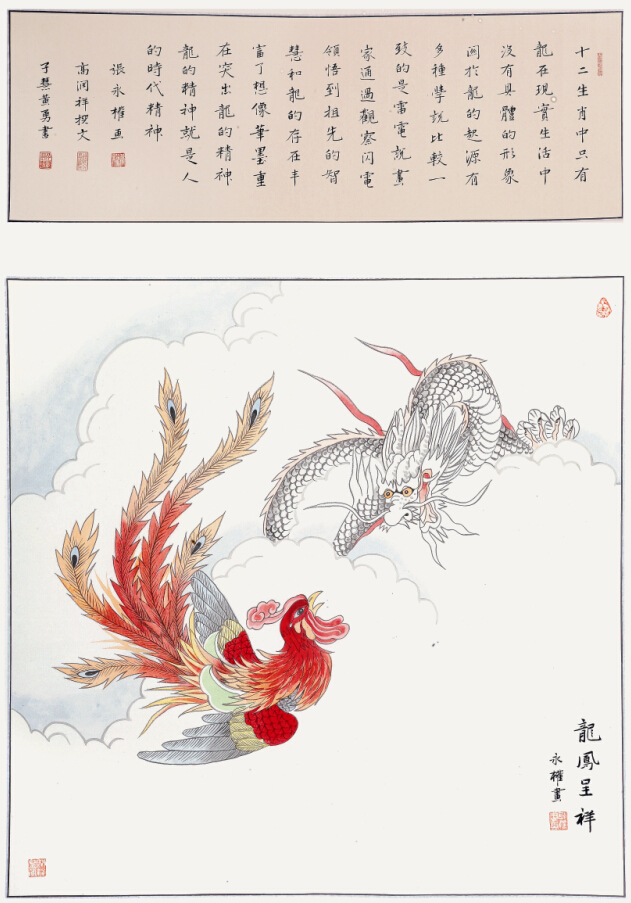 十二生肖中只有
龍在現實生活中
沒有具體的形象
関於龍的起源有
多種學說比較一
致的是雷電說畫
家通過觀察閃電
領悟到祖先的智
慧和龍的存在丰
富了想像筆墨重
在突出龍的精神
龍的精神就是人
的時代精神
張永權画
高润祥撰文
子慧黄勇書
龍鳳呈祥
永權畫